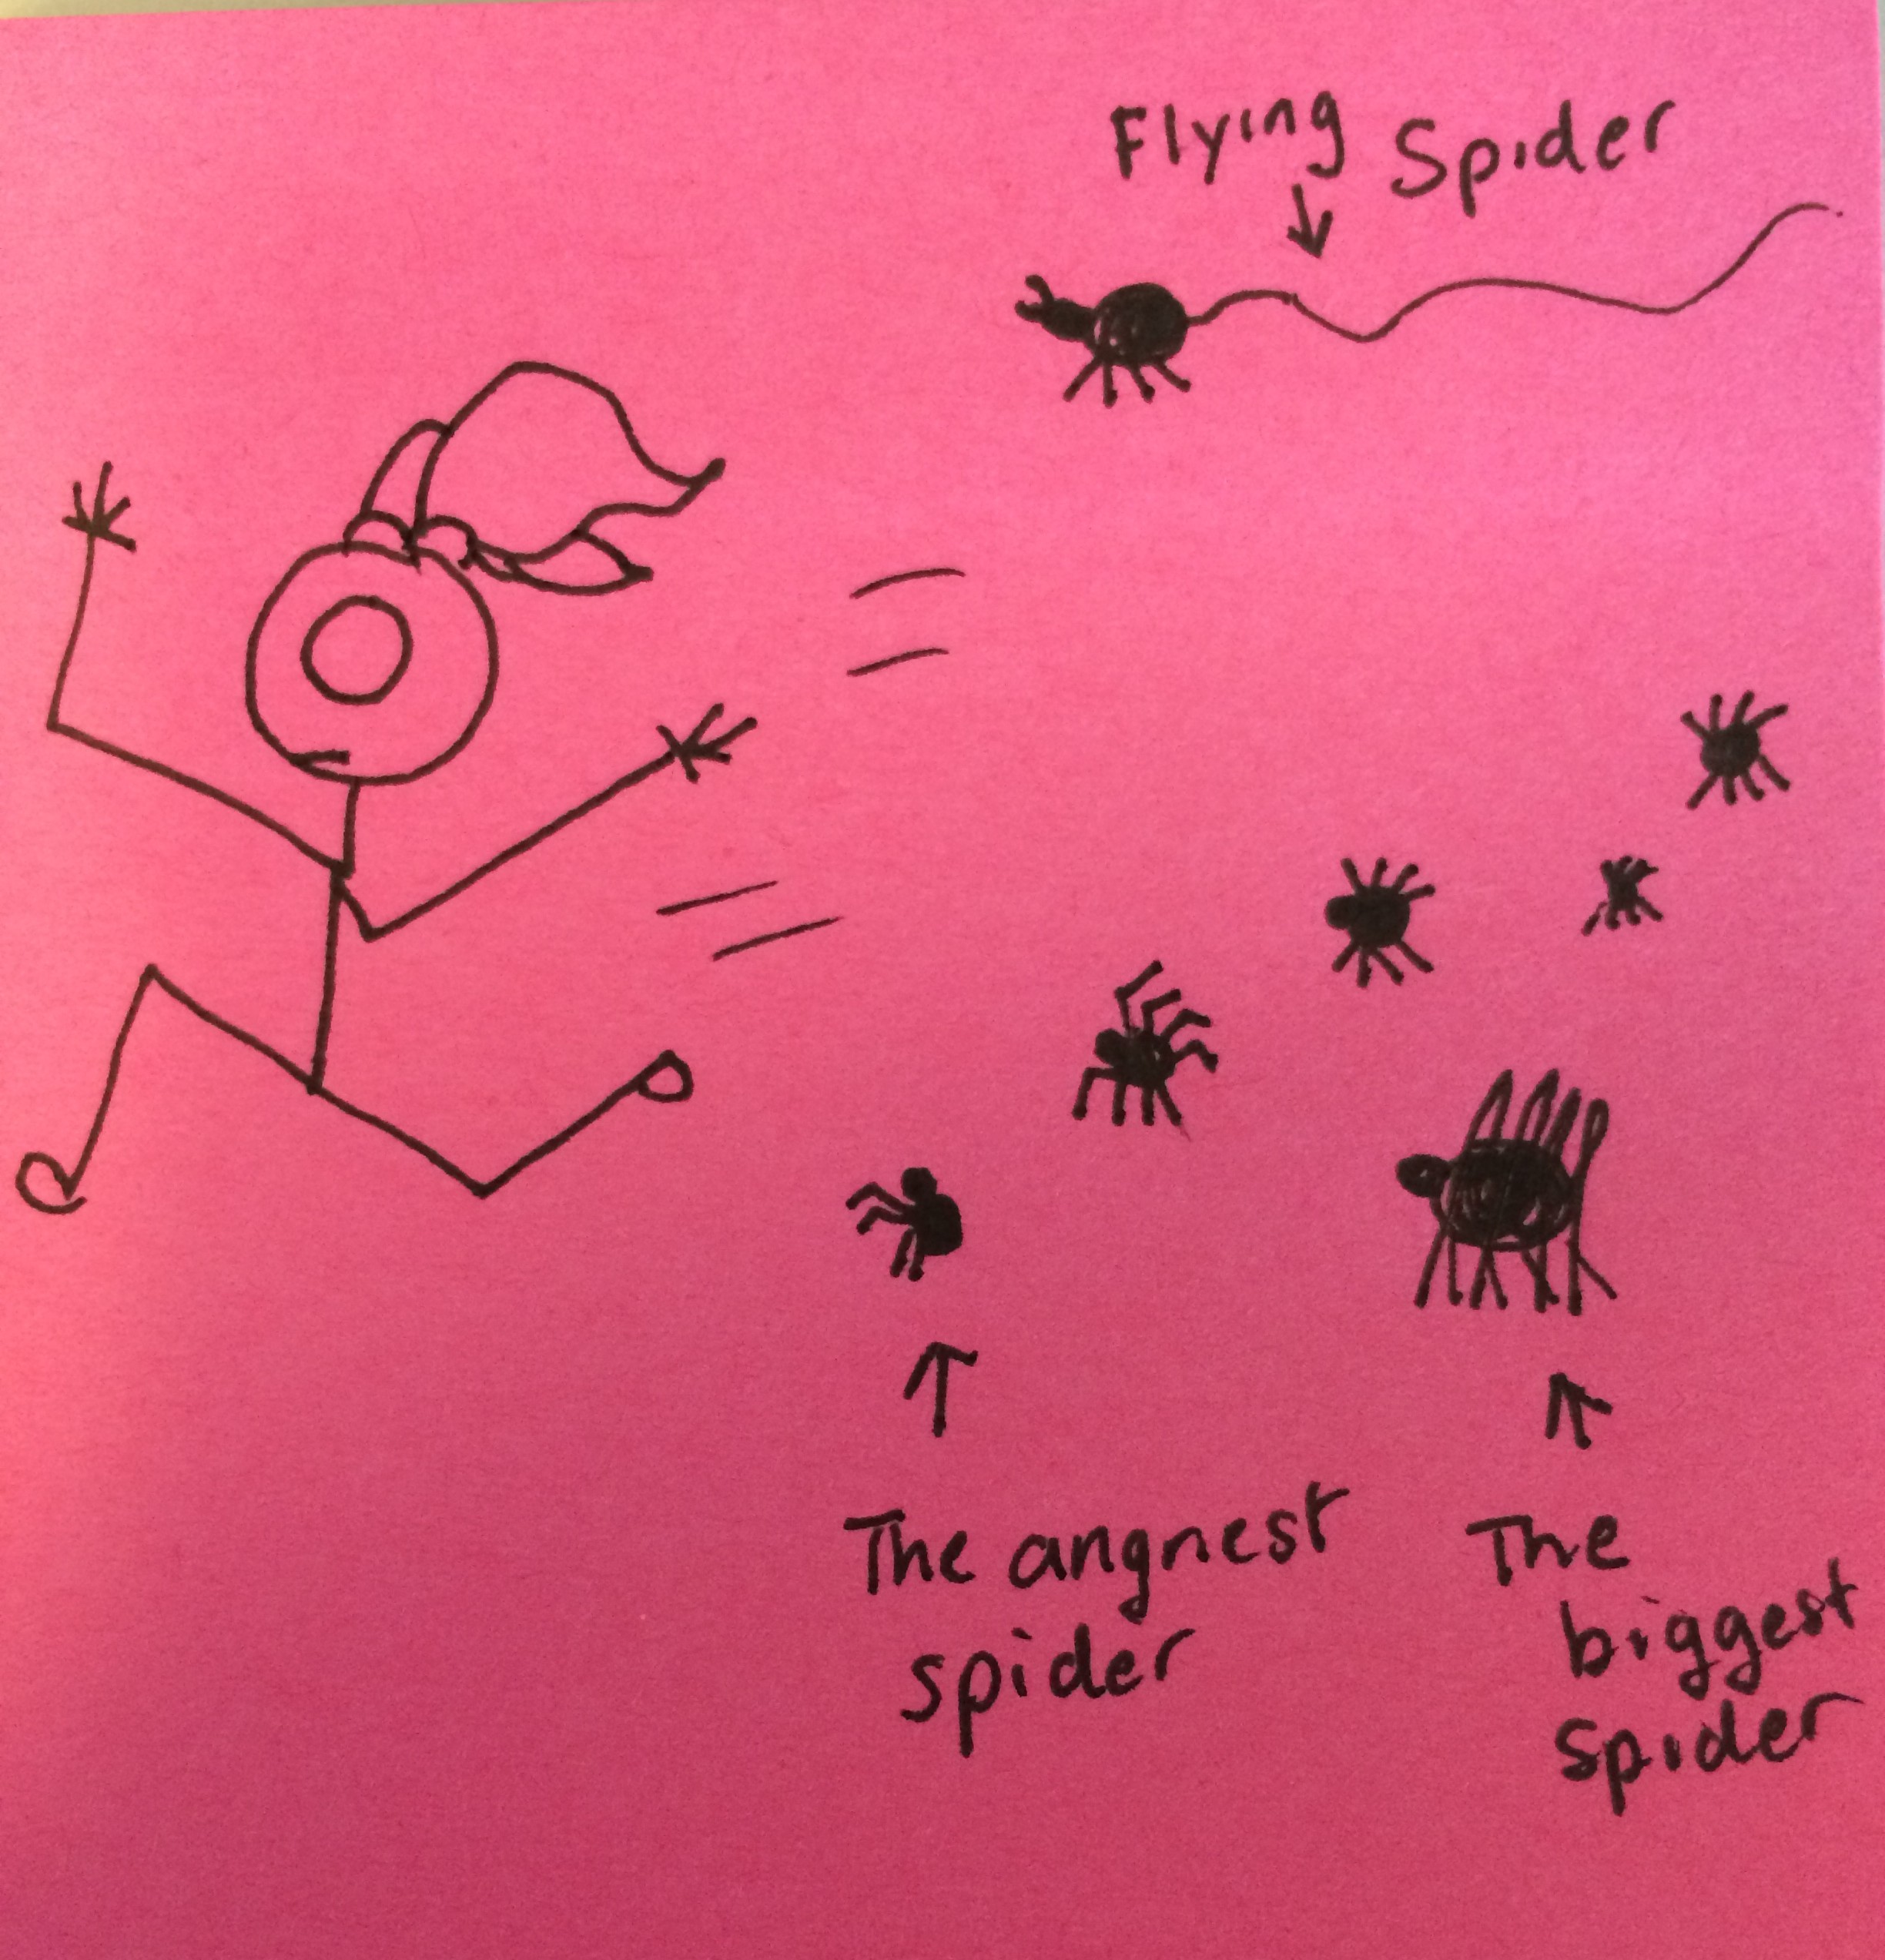 Flying Spider
The angriest
spider
The
biggest
spider